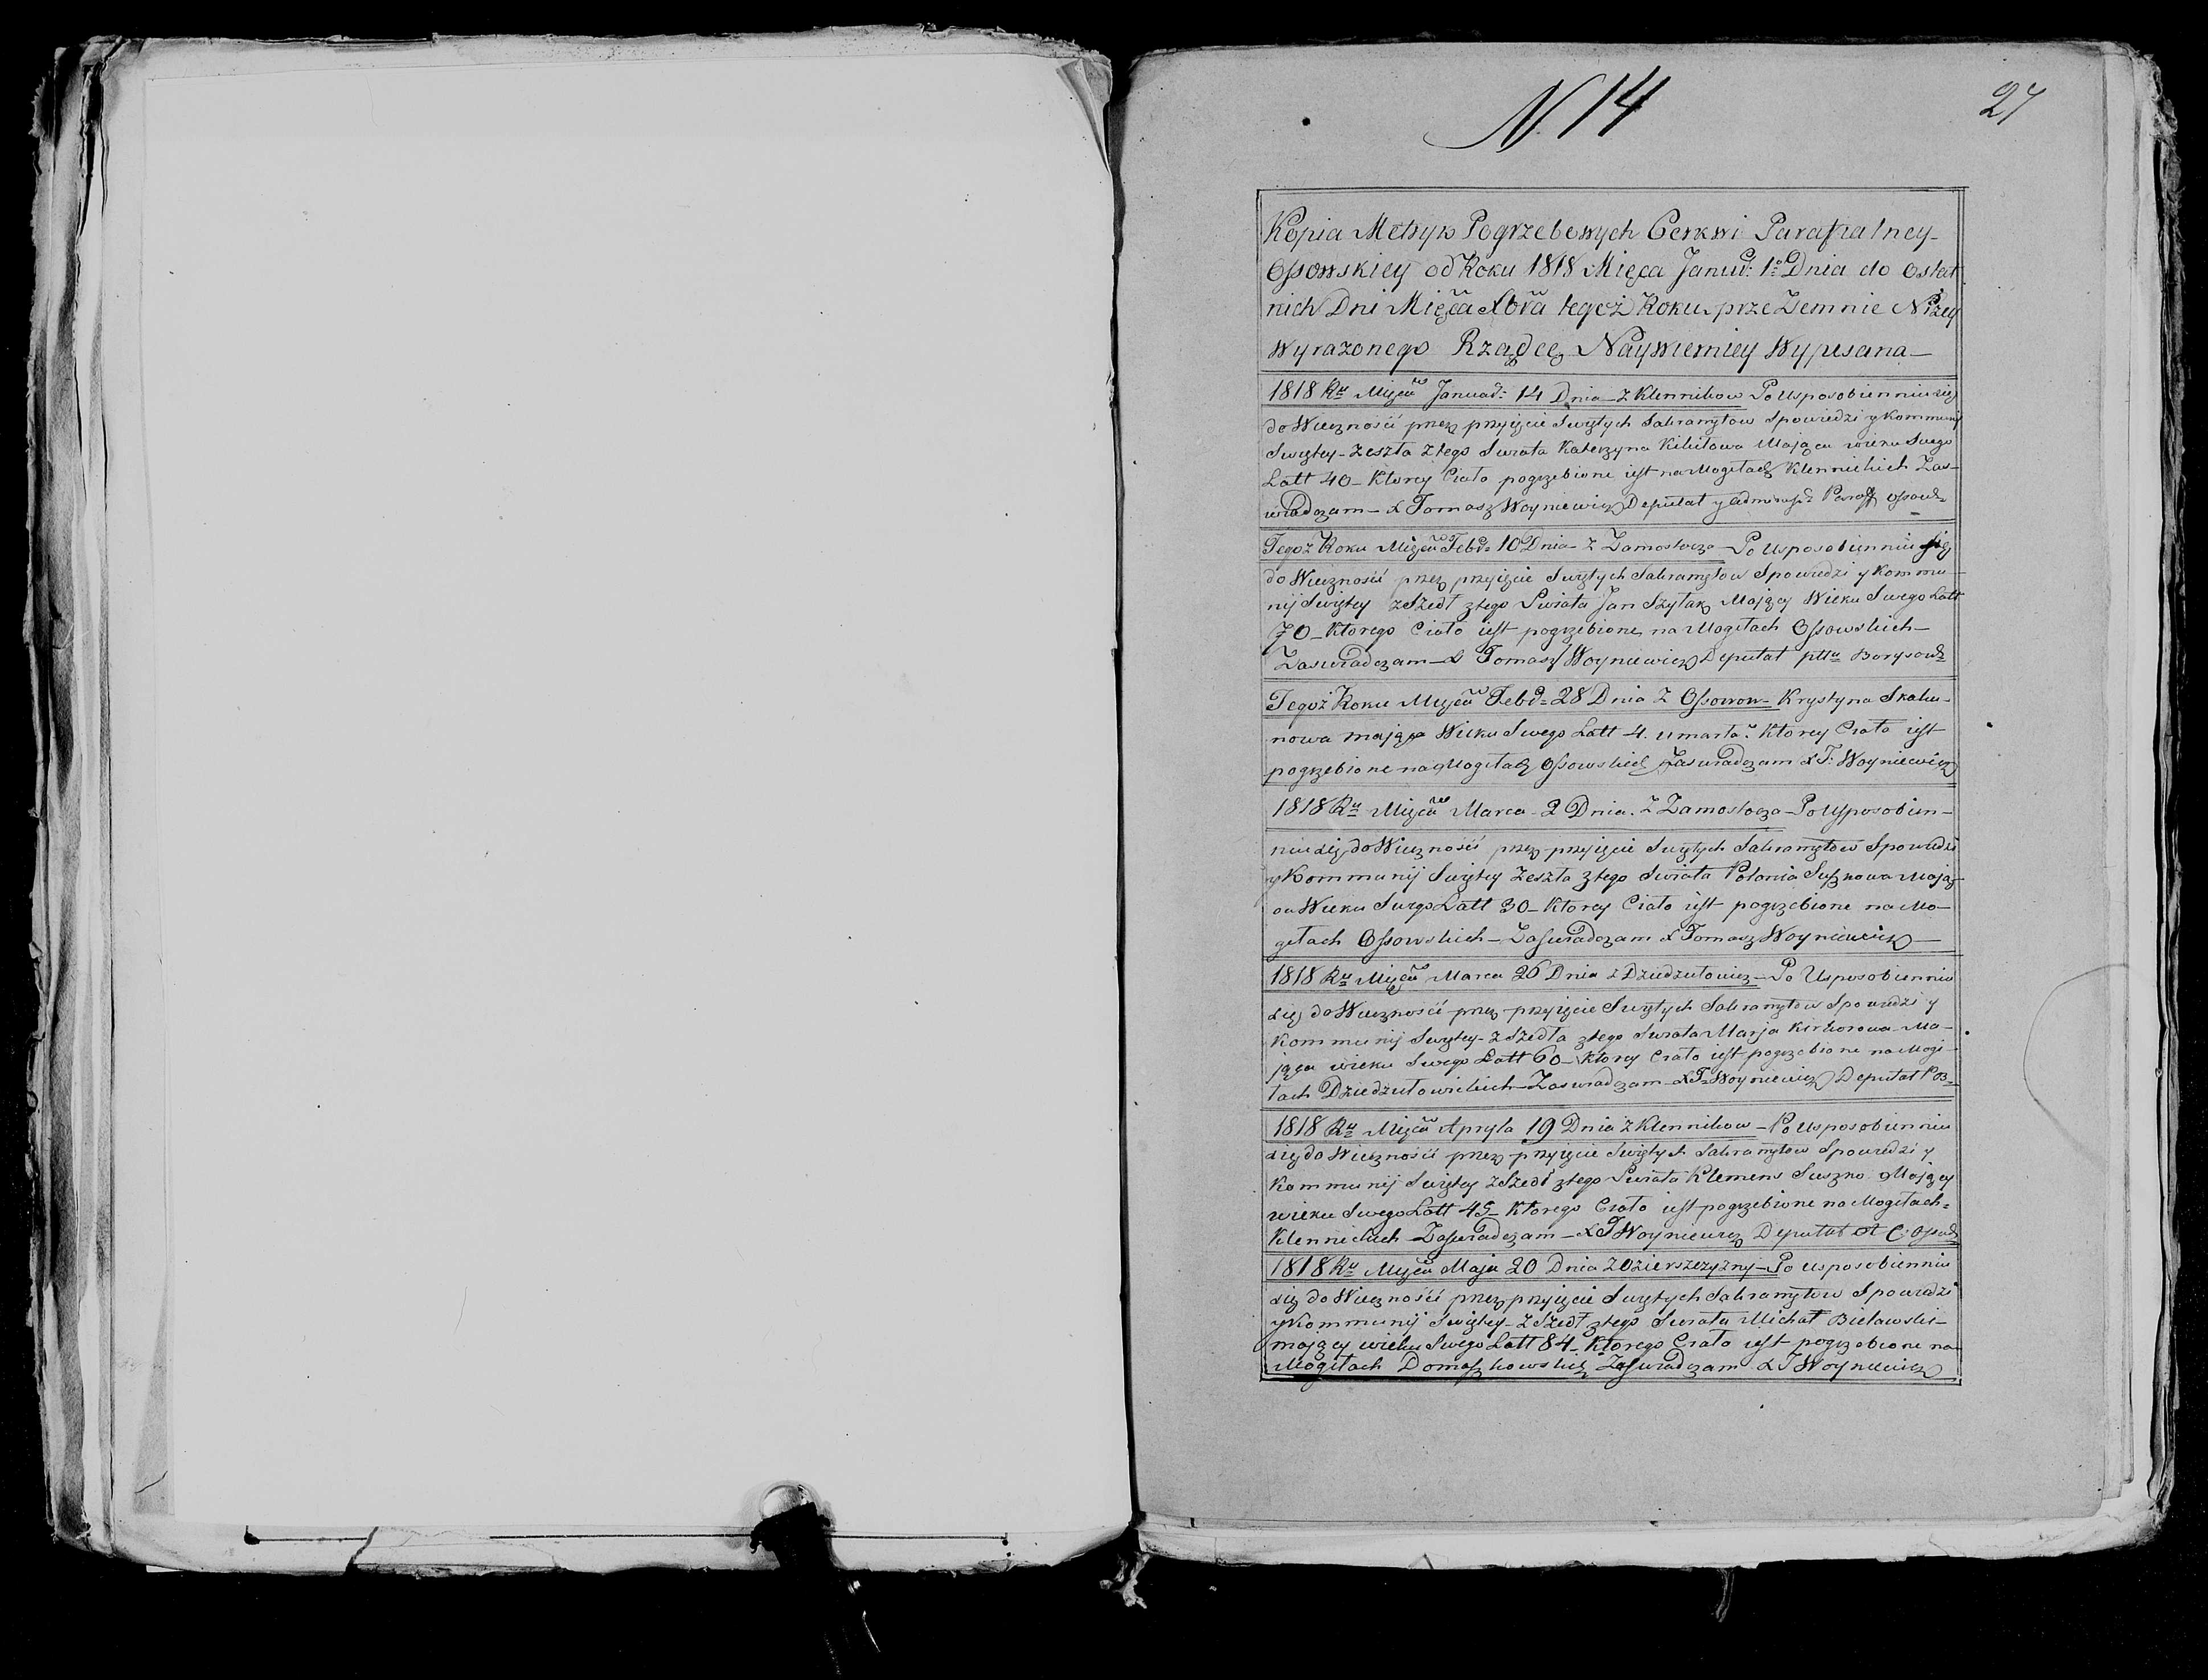 N 14
27
Kopia Metryk Pogrzebowych Cerkwi Parafialney
Ossowskiey od Roku 1818 Mięca Januar: 1º Dnia do Ostat
nich Dni Mięca Xbra tegoż Roku przeZemnie Niżey
Wyrazonego Rządcę Naywierniey Wypisana
1818 Ru Mięca Januar: 14 Dnia z Klennikow Po Usposobienniu się
do Wiecznośći przez przyięcie Swiętych Sakramętow Spowiedzi y Kommunij
Swiętey - Zeszła z tego Swiata Katerzyna Kikiłowa Mająca wieku Swego
Latt 40 - Ktorey Ciało pogrzebione iest na Mogiłach Klennickich Zas-
wiadczam - X Tomasz Woyniewicz Deputat y Paroch
Tegoż Roku Mięca Febr= 10 Dnia - Z Zamostocza - Po Usposobienniu się
do Wiecznośći przez przyięcie Swiętych Sakramętow Spowiedzi y Kommu-
nij Swiętey zSzedł z tego Swiata Jan Szyłak Mający Wieku Swego Latt
70 - Ktorego Ciało iest pogrzebione na Mogiłach Ossowskich -
Zaswiadczam - X Tomasz Woyniewicz Deputat pttu Borysow=
Tegoż Roku Mięca Febr= 28 Dnia Z Ossowow - Krystyna Skaku-
nowa mająca Wieku Swego Latt 4. umarła: Ktorey Ciało iest
pogrzebione na Mogiłach Ossowskich Zaswiadczam X T: Woyniewicz
1818 Ru Mięca Marca - 2 Dnia. Z Zamostocza - Po Usposobien-
niu się do Wiecznośći przez przyięcie Swiętych Sakramętow Spowiedzi
y Kommunij Swiętey Zeszła z tego Swiata Połonia Suszkowa Mają-
ca Wieku Swego Latt 30 - Ktorey Ciało iest pogrzebione na Mo-
giłach Ossowskich - Zaswiadczam X Tomasz Woyniewicz -
1818 Ru Mięca Marca 26 Dnia z Dziedziułowicz - Po Usposobienniu
się do Wiecznośći przez przyięcie Swiętych Sakramętow Spowiedzi y
Kommunij Swiętey - zSzedła z tego Swiata Marja Kirkorowa Ma-
jąca wieku Swego Latt 60 - Ktorey Ciało iest pogrzebione na Mogi-
łach Dziedziułowickich - Zaswiadczam - X T= Woyniewicz Deputat P B=
1818 Ru Mięca Apryla 19 Dnia z Klennikow - Po Usposobienniu
się do Wiecznośći przez przyięcie Swiętych Sakramętow Spowiedzi y
Kommunij Swiętey zSzedł z tego Swiata Klemens Suszko Mający
wieku Swego Latt 45 - Ktorego Ciało iest pogrzebione na Mogiłach=
Klennickich - Zaswiadczam - X T Woyniewicz Deputat
1818 Ru Mięca Maja 20 Dnia z Ozierszczyzny - Po Usposobienniu
się do Wiecznośći przez przyięcie Swiętych Sakramętow Spowiedzi
y Kommunij Swiętey - zSzedł z tego Swiata Michał Bielawski -
mający wieku Swego Latt 84 - Ktorego Ciało iest pogrzebione na
Mogiłach Domaszkowskich Zaswiadczam X T Woyniewicz